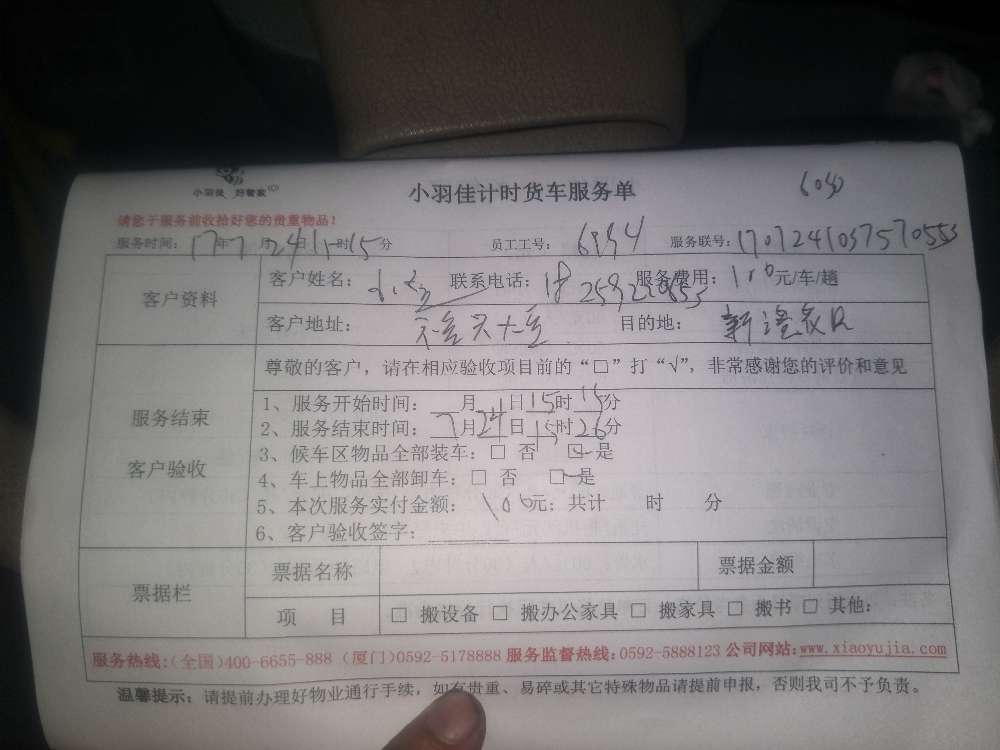 小羽佳 好管家
小羽佳计时货车服务单
请您于服务前收拾好您的贵重物品!
服务时间: 17年7月24日15时15分 员工工号: 6994 服务联号:
客户资料
客户姓名: 联系电话: 服务费用: 100元/车/趟
客户地址: 目的地:
尊敬的客户，请在相应验收项目前的“□”打“√”，非常感谢您的评价和意见
服务结束
客户验收
1、服务开始时间: 月24日15时15分
2、服务结束时间: 7月24日15时26分
3、候车区物品全部装车: □ 否 □ 是
4、车上物品全部卸车: □ 否 □ 是
5、本次服务实付金额: 100元; 共计 时 分
6、客户验收签字:
票据栏
票据名称 票据金额
项 目 □ 搬设备 □ 搬办公家具 □ 搬家具 □ 搬书 □ 其他:
服务热线:(全国)400-6655-888 (厦门)0592-5178888 服务监督热线:0592-5888123 公司网站:www.xiaoyujia.com
温馨提示: 请提前办理好物业通行手续，如有贵重、易碎或其它特殊物品请提前申报，否则我司不予负责。